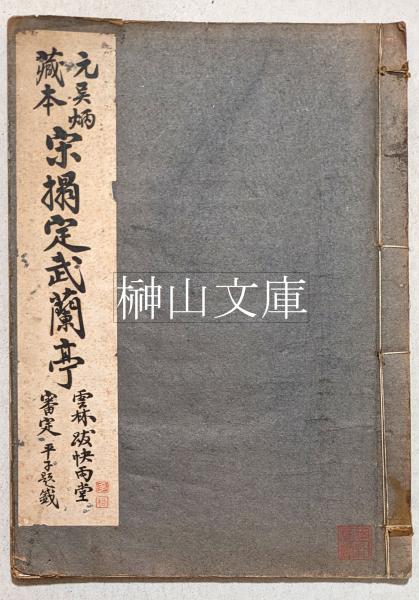 元吴炳
藏本
宋搨定武蘭亭
雲林跋快雨堂
審定 平子題籤
榊山文庫